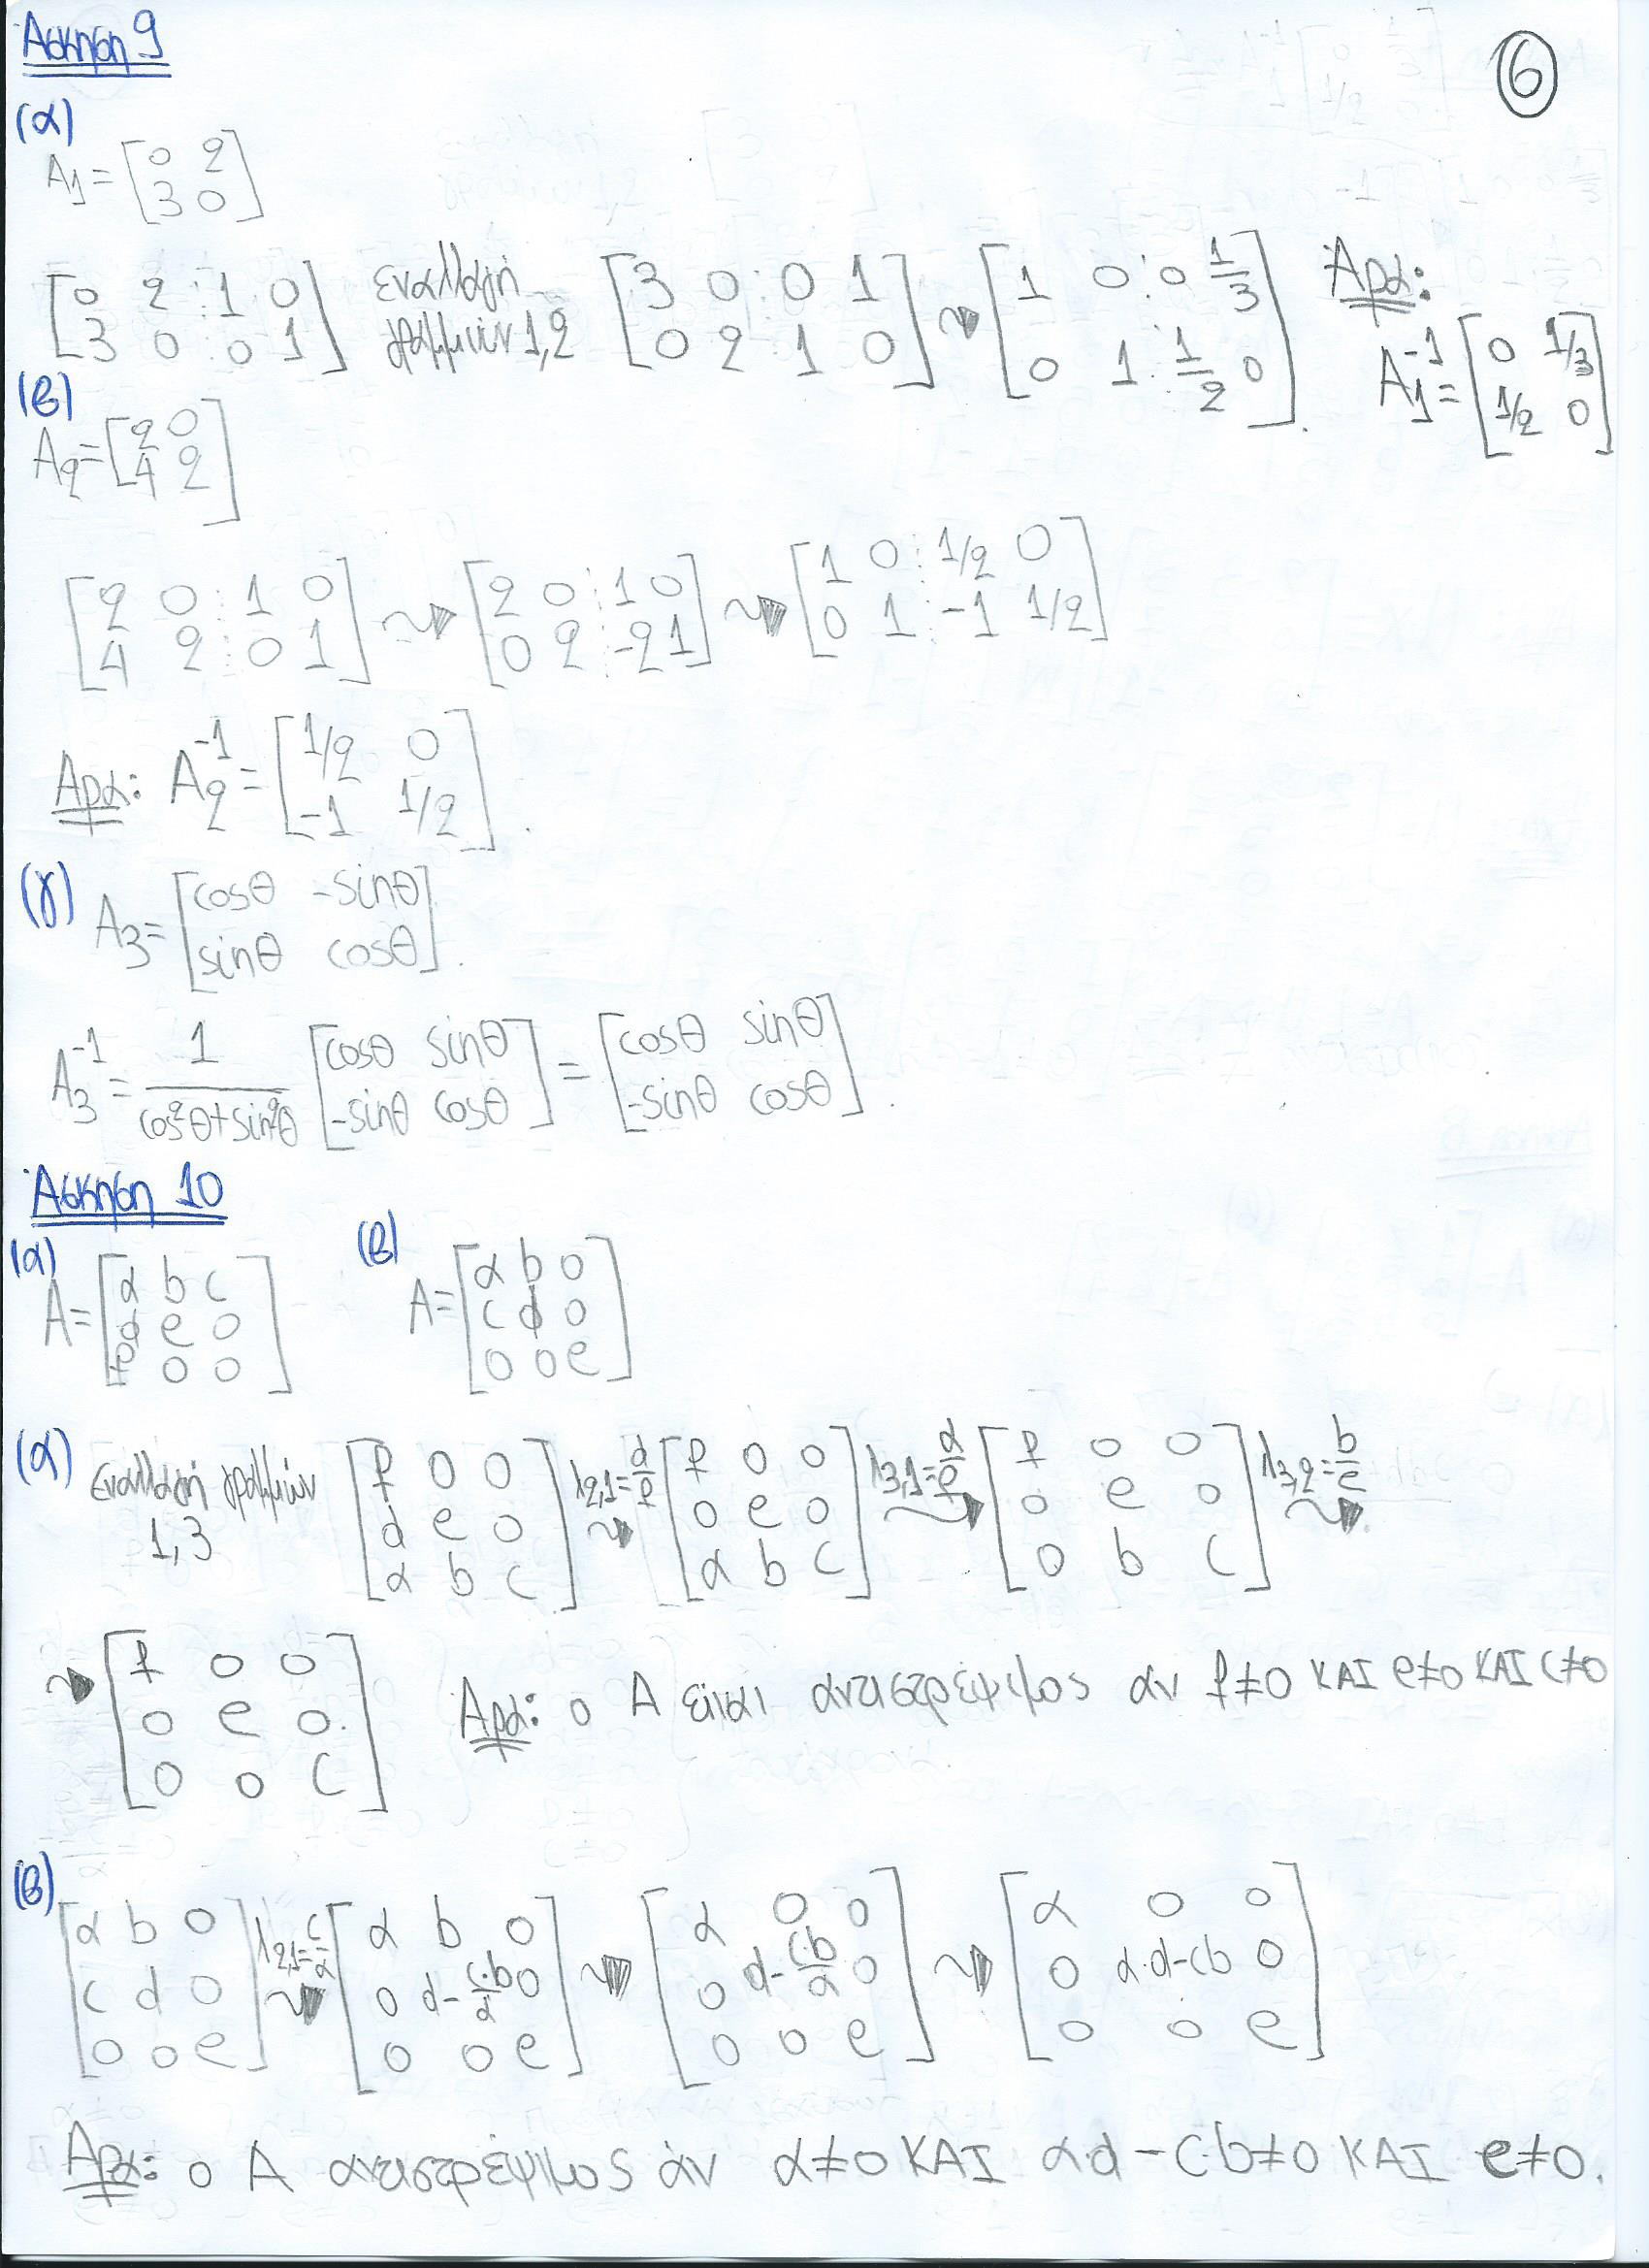 Άσκηση 9
6
(α)
A₁ = [0 2; 3 0]
[0 2 : 1 0; 3 0 : 0 1] εναλλαγή γραμμών 1,2 [3 0 : 0 1; 0 2 : 1 0] ⇝ [1 0 : 0 1/3; 0 1 : 1/2 0]. Άρα: A₁⁻¹ = [0 1/3; 1/2 0]
(β)
A₂ = [2 0; 4 2]
[2 0 : 1 0; 4 2 : 0 1] ⇝ [2 0 : 1 0; 0 2 : -2 1] ⇝ [1 0 : 1/2 0; 0 1 : -1 1/2]
Άρα: A₂⁻¹ = [1/2 0; -1 1/2].
(γ) A₃ = [cosθ -sinθ; sinθ cosθ].
A₃⁻¹ = 1/(cos²θ+sin²θ) [cosθ sinθ; -sinθ cosθ] = [cosθ sinθ; -sinθ cosθ].
Άσκηση 10
(α) A = [α b c; d e 0; f 0 0] (β) A = [α b 0; c d 0; 0 0 e]
(α) εναλλαγή γραμμών 1,3 [f 0 0; d e 0; α b c] λ2,1 = d/f ⇝ [f 0 0; 0 e 0; α b c] λ3,1 = α/f ⇝ [f 0 0; 0 e 0; 0 b c] λ3,2 = b/e ⇝
⇝ [f 0 0; 0 e 0; 0 0 c] Άρα: ο A είναι αντιστρέψιμος αν f≠0 ΚΑΙ e≠0 ΚΑΙ c≠0
(β) [α b 0; c d 0; 0 0 e] λ2,1 = c/α ⇝ [α b 0; 0 d-c·b/α 0; 0 0 e] ⇝ [α 0 0; 0 d-c·b/α 0; 0 0 e] ⇝ [α 0 0; 0 α·d-cb 0; 0 0 e]
Άρα: ο A αντιστρέψιμος άν α≠0 ΚΑΙ α·d-c·b≠0 ΚΑΙ e≠0.